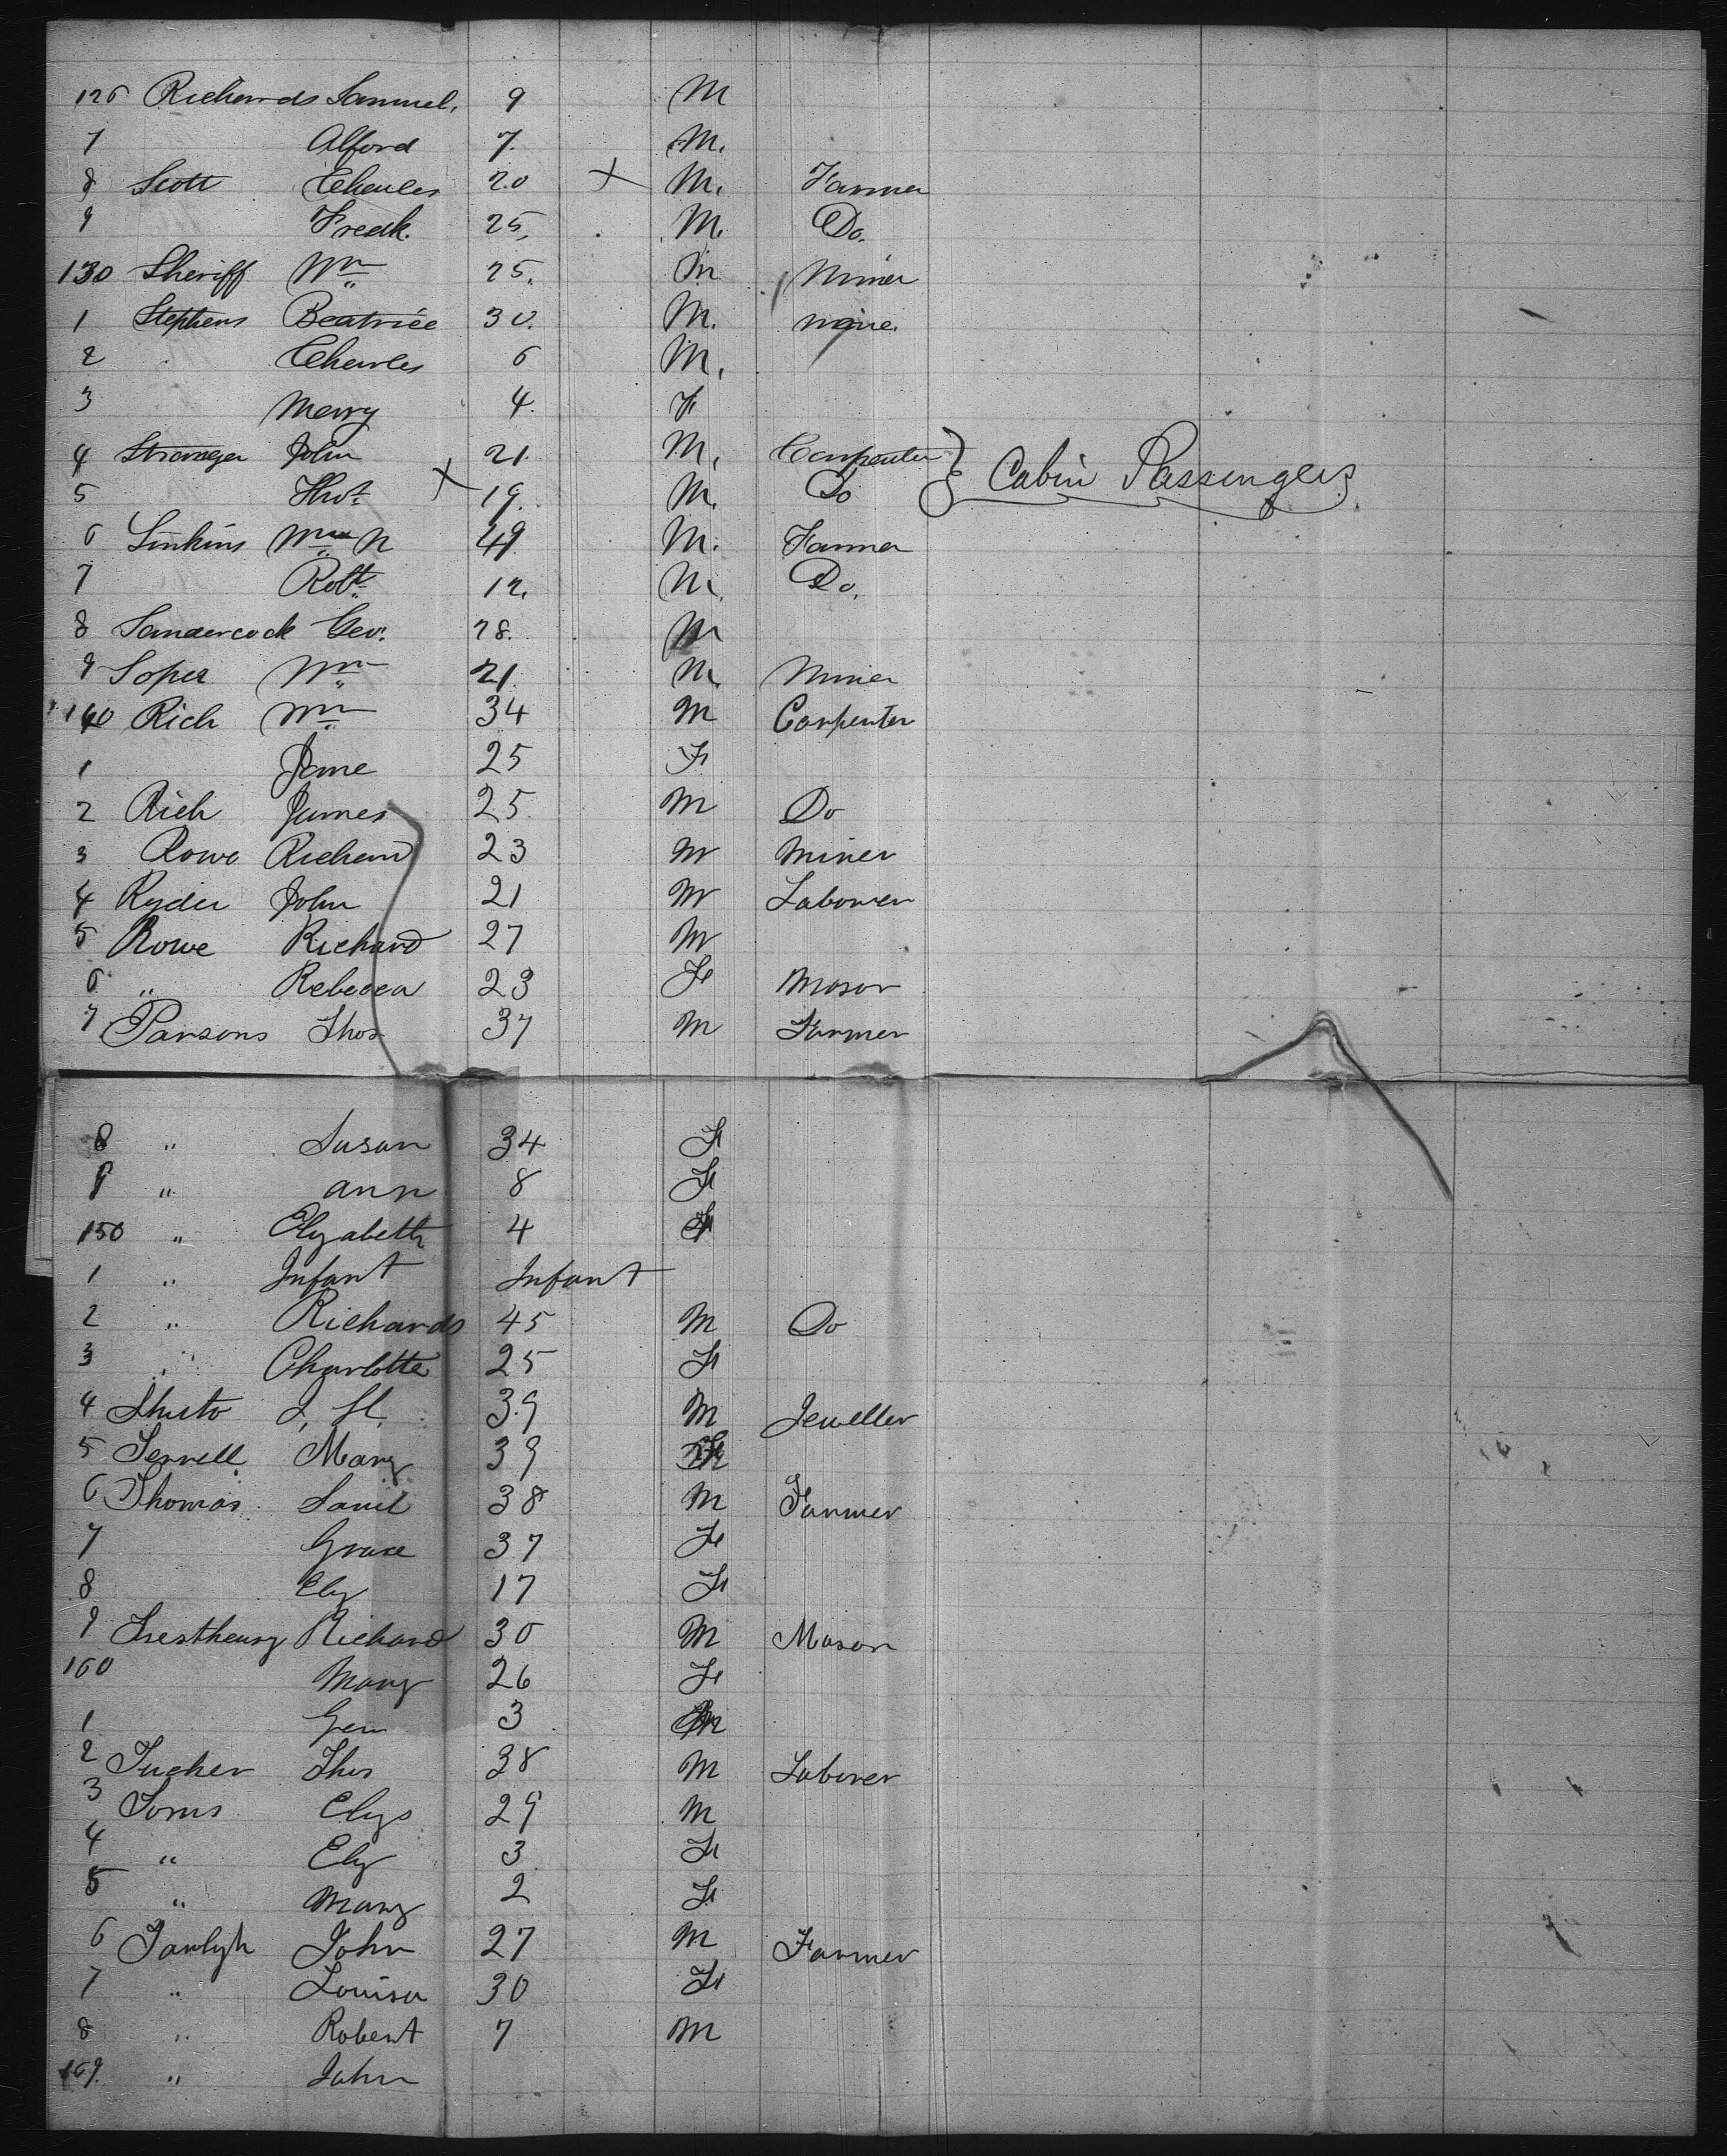 126 Richards Samuel. 9 M
7 Alford 7. M.
8 Scott Charles 20 + M. Farmer
9 Fredk. 25. M. Do.
130 Sheriff Wm 25. M Miner
1 Stephens Beatrice 30. M.
2 Charles 6 M.
3 Merry 4. F
4 Stranger John 21. M. Carpenter } Cabin Passengers
5 Thos. + 19. M. Do
6 Sinkins Wm N 49. M. Farmer
7 Robt. 12. M. Do.
8 Sandercock Geo. 28. M
9 Soper Wm 21. M. Miner
140 Rich Wm 34 M Carpenter
1 Jane 25 F
2 Rich James 25 M Do
3 Rowe Richard 23 M Miner
4 Ryder John 21 M Laborer
5 Rowe Richard 27 M
6 " Rebecca 23 F Mason
7 Parsons Thos 37 M Farmer
8 " Susan 34 F
9 " ann 8 F
150 " Elyabeth 4 F
1 " Infant Infant
2 " Richards 45 M Do
3 " Charlotte 25 F
4 J. H. 39 M Jeweller
5 Terrell Mary 39
6 Thomas Saml 38 M Farmer
7 Grace 37 F
8 Ely 17 F
9 Richard 30 M Mason
160 Mary 26 F
1 Geo 3 M
2 Tucker Thos 38 M Laborer
3 Toms Elys 29 M
4 " Ely 3 F
5 " Mary 2 F
6 John 27 M Farmer
7 " Louisa 30 F
8 " Robert 7 M
169. " John